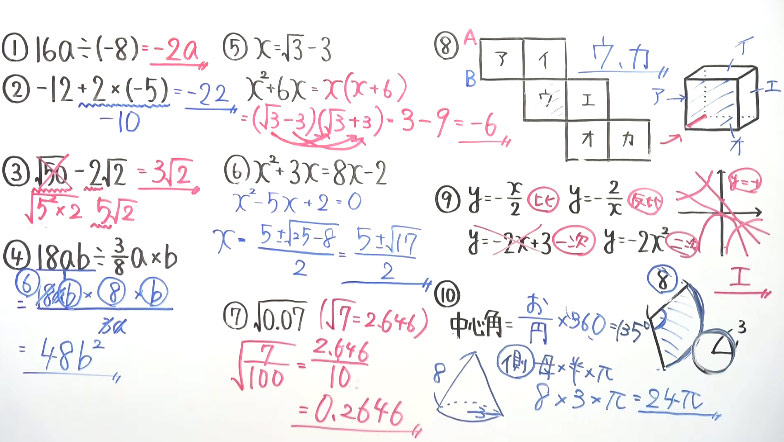 ① 16a÷(-8)=-2a
② -12+2×(-5)=-22
-10
③ √50-2√2=3√2
√5²×2 5√2
④ 18ab÷3/8a×b
⑥
= 18ab×8×b / 3a
= 48b²
⑤ x=√3-3
x²+6x=x(x+6)
=(√3-3)(√3+3)=3-9=-6
⑥ x²+3x=8x-2
x²-5x+2=0
x=5±√25-8/2=5±√17/2
⑦ √0.07 (√7=2.646)
√7/100=2.646/10
=0.2646
⑧ A
B
ア イ
ウ エ
オ カ
ウ、カ
イ
ア
エ
オ
⑨ y=-x/2 比 y=-2/x 反比
y=-2x+3 一次 y=-2x² 二次
エ
⑩
中心角=お/円×360=135°
8
3
側 母×半×π
8×3×π=24π
8
3